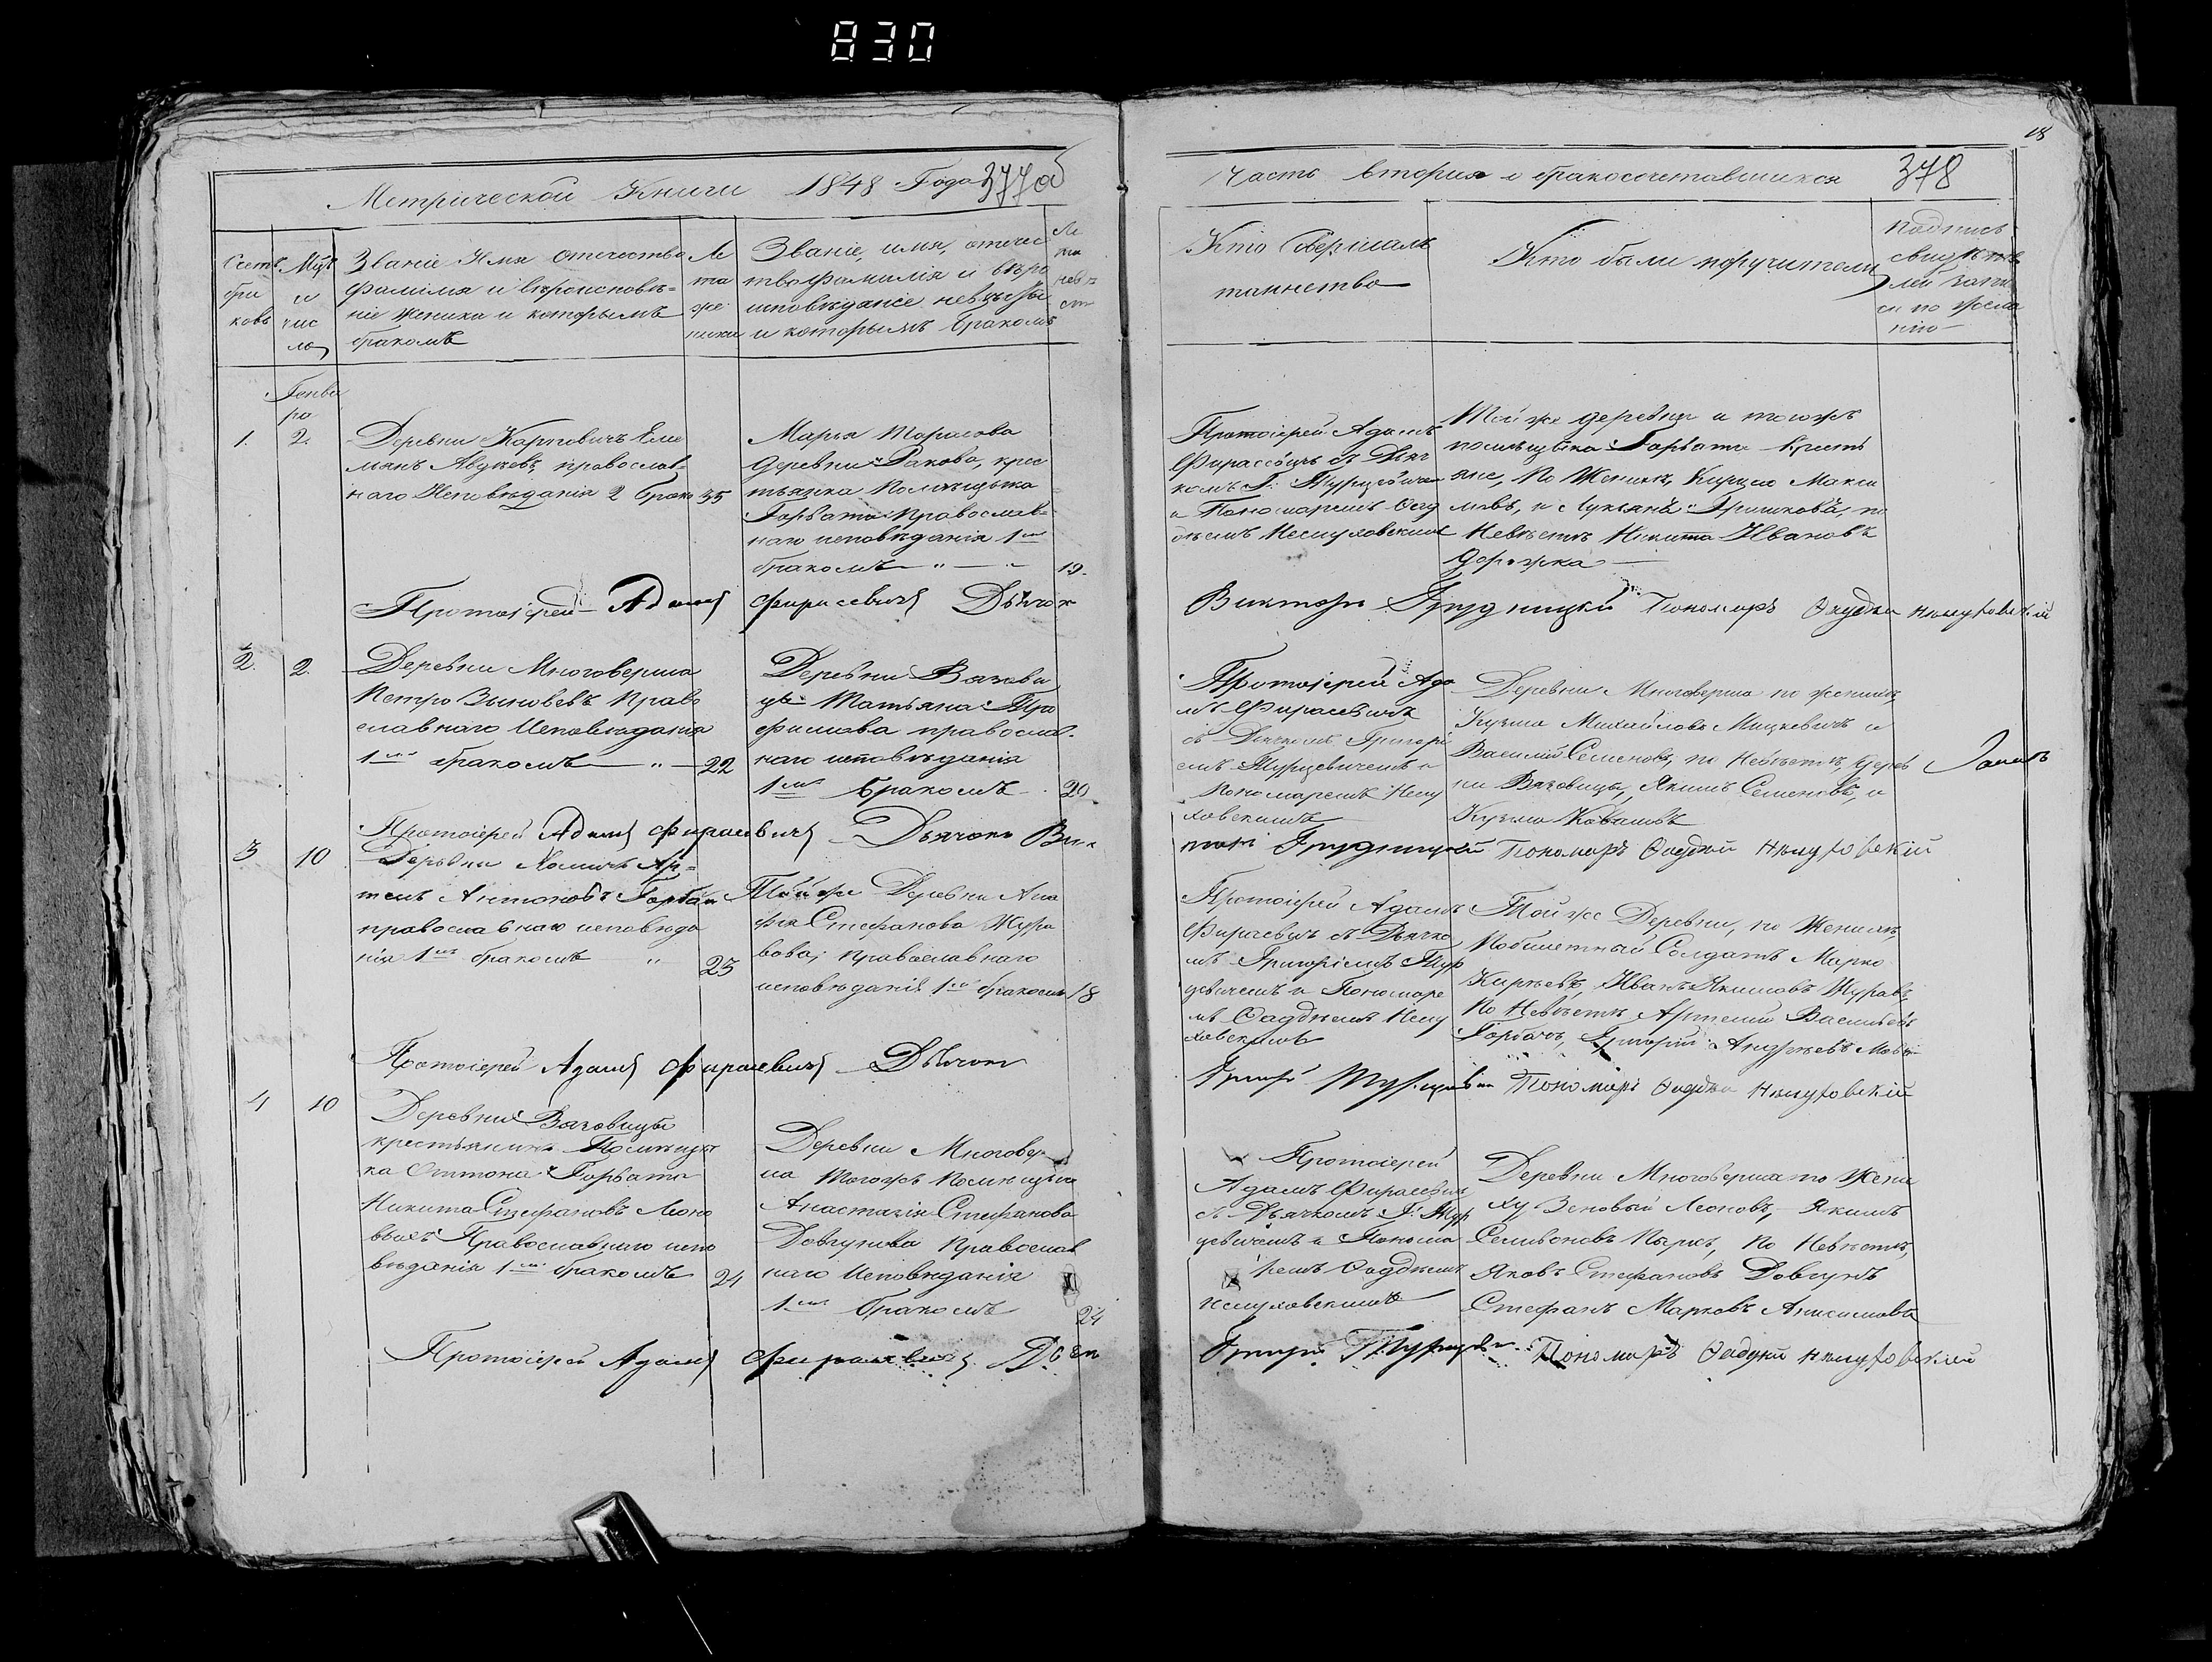 830
18
Метрической Книги 1848 Года 377об
Часть вторая о бракосочетавшихся 378
Счетъ бра ковъ
Мцъ и чис ло
Званіе Имя отечество
фамилія и вѣроисповѣ=
ніе жениха и которымъ
бракомъ
Ле та же ниха
Званіе, имя, отечес
тво фамилія и вѣро
исповѣданіе невѣсты
и которымъ бракомъ
Ле та невѣ сты
Кто Совершалъ
таинство
Кто были поручители
Подпись
свидѣте
лей запи
си по жела
нію
Генва
ря
1.
2.
Деревни Карпович Еме
льянъ Авдѣевъ православ=
наго Исповѣданія 2 брако
35
Марья Тарасова
Деревни Ракова, крес
тьянка Помѣщика
Горвата Православ=
наго исповѣданія 1мъ
бракомъ
19.
Протоіерей Адамъ
Фирасевичъ съ Дьяч
комъ Г. Турцевичем
и Пономаремъ Фад
дѣемъ Несмуховскимъ
Той же деревни и тогожъ
помѣщика Горвата Кресть
яне, По Женихѣ, Макси
мовъ, и Лукьянъ Гришковъ, по
Невѣстѣ Никита Ивановъ
Дорожка
Протоіерей Адамъ Фирасевичъ Дьячок
Викторъ Грудницкій Пономаръ
2.
2.
Деревни Многоверша
Петро Зыновевъ Право
славнаго Исповѣданія
1мъ бракомъ
22
Деревни Вязови
цы Татьяна Тро
фимова православ.
наго исповѣданія
1мъ бракомъ
20
Протоіерей Ада
мъ Фирасевичъ
съ Дьячкомъ Григорі
емъ Турцевичемъ и
Пономаремъ Несму
ховскимъ
Деревни Многоверша по женихѣ,
Кузьма Михайловъ Мицкевичъ и
Василій Семеновъ, по Невѣстѣ, дерев
ни Вязовицы, Якимъ Семеновъ, и
Кузьма Ковалевъ
Протоіерей Адамъ Фирасевичъ Дьячокъ Вик
торъ Грудницкій Пономаръ Фаддей
3
10
Деревни Хомичъ Ар=
темъ Антоновъ Горбачъ
православнаго исповѣда
нія 1мъ бракомъ
23
Той же Деревни Ага
фія Стефанова Жура
вова, православнаго
исповѣданія 1мъ бракомъ
18
Протоіерей Адамъ
Фирасевичъ съ Дьячко
мъ Григоріемъ Тур
цевичемъ и Пономаре
мъ Фаддѣемъ Несму
ховскимъ
Той же Деревни, по Женихѣ,
Побилетный Солдатъ Марко
Иванъ Якимовъ Журавъ,
По Невѣстѣ, Артемій Васильевъ
Горбачъ, Григорій Андреевъ
Протоіерей Адамъ Фирасевичъ Дьячокъ
Григорій Турцевичъ Пономаръ
4
10
Деревни Вязовицы
крестьянинъ Помѣщи
ка Оттона Горвата
Никита Стефановъ Леоно
Православнаго испо
вѣданія 1мъ бракомъ
24
Деревни Многовер
ша тогожъ Помѣщика
Анастазія Стефанова
Довгунова Православ
наго Исповѣданія
1мъ бракомъ
24
Протоіерей
Адамъ Фирасевичъ
съ Дьячкомъ Г. Тур
цевичемъ и Понома
ремъ Фаддѣемъ
Несмуховскимъ
Деревни Многоверша по Жени
ху Зеновый Леоновъ, Якимъ
Семьоновъ По Невѣстѣ,
Яковъ Стефановъ Довгунъ
Стефанъ Марковъ Анисимовъ
Протоіерей Адамъ Фирасевичъ
Григорій Турцевичъ Пономаръ